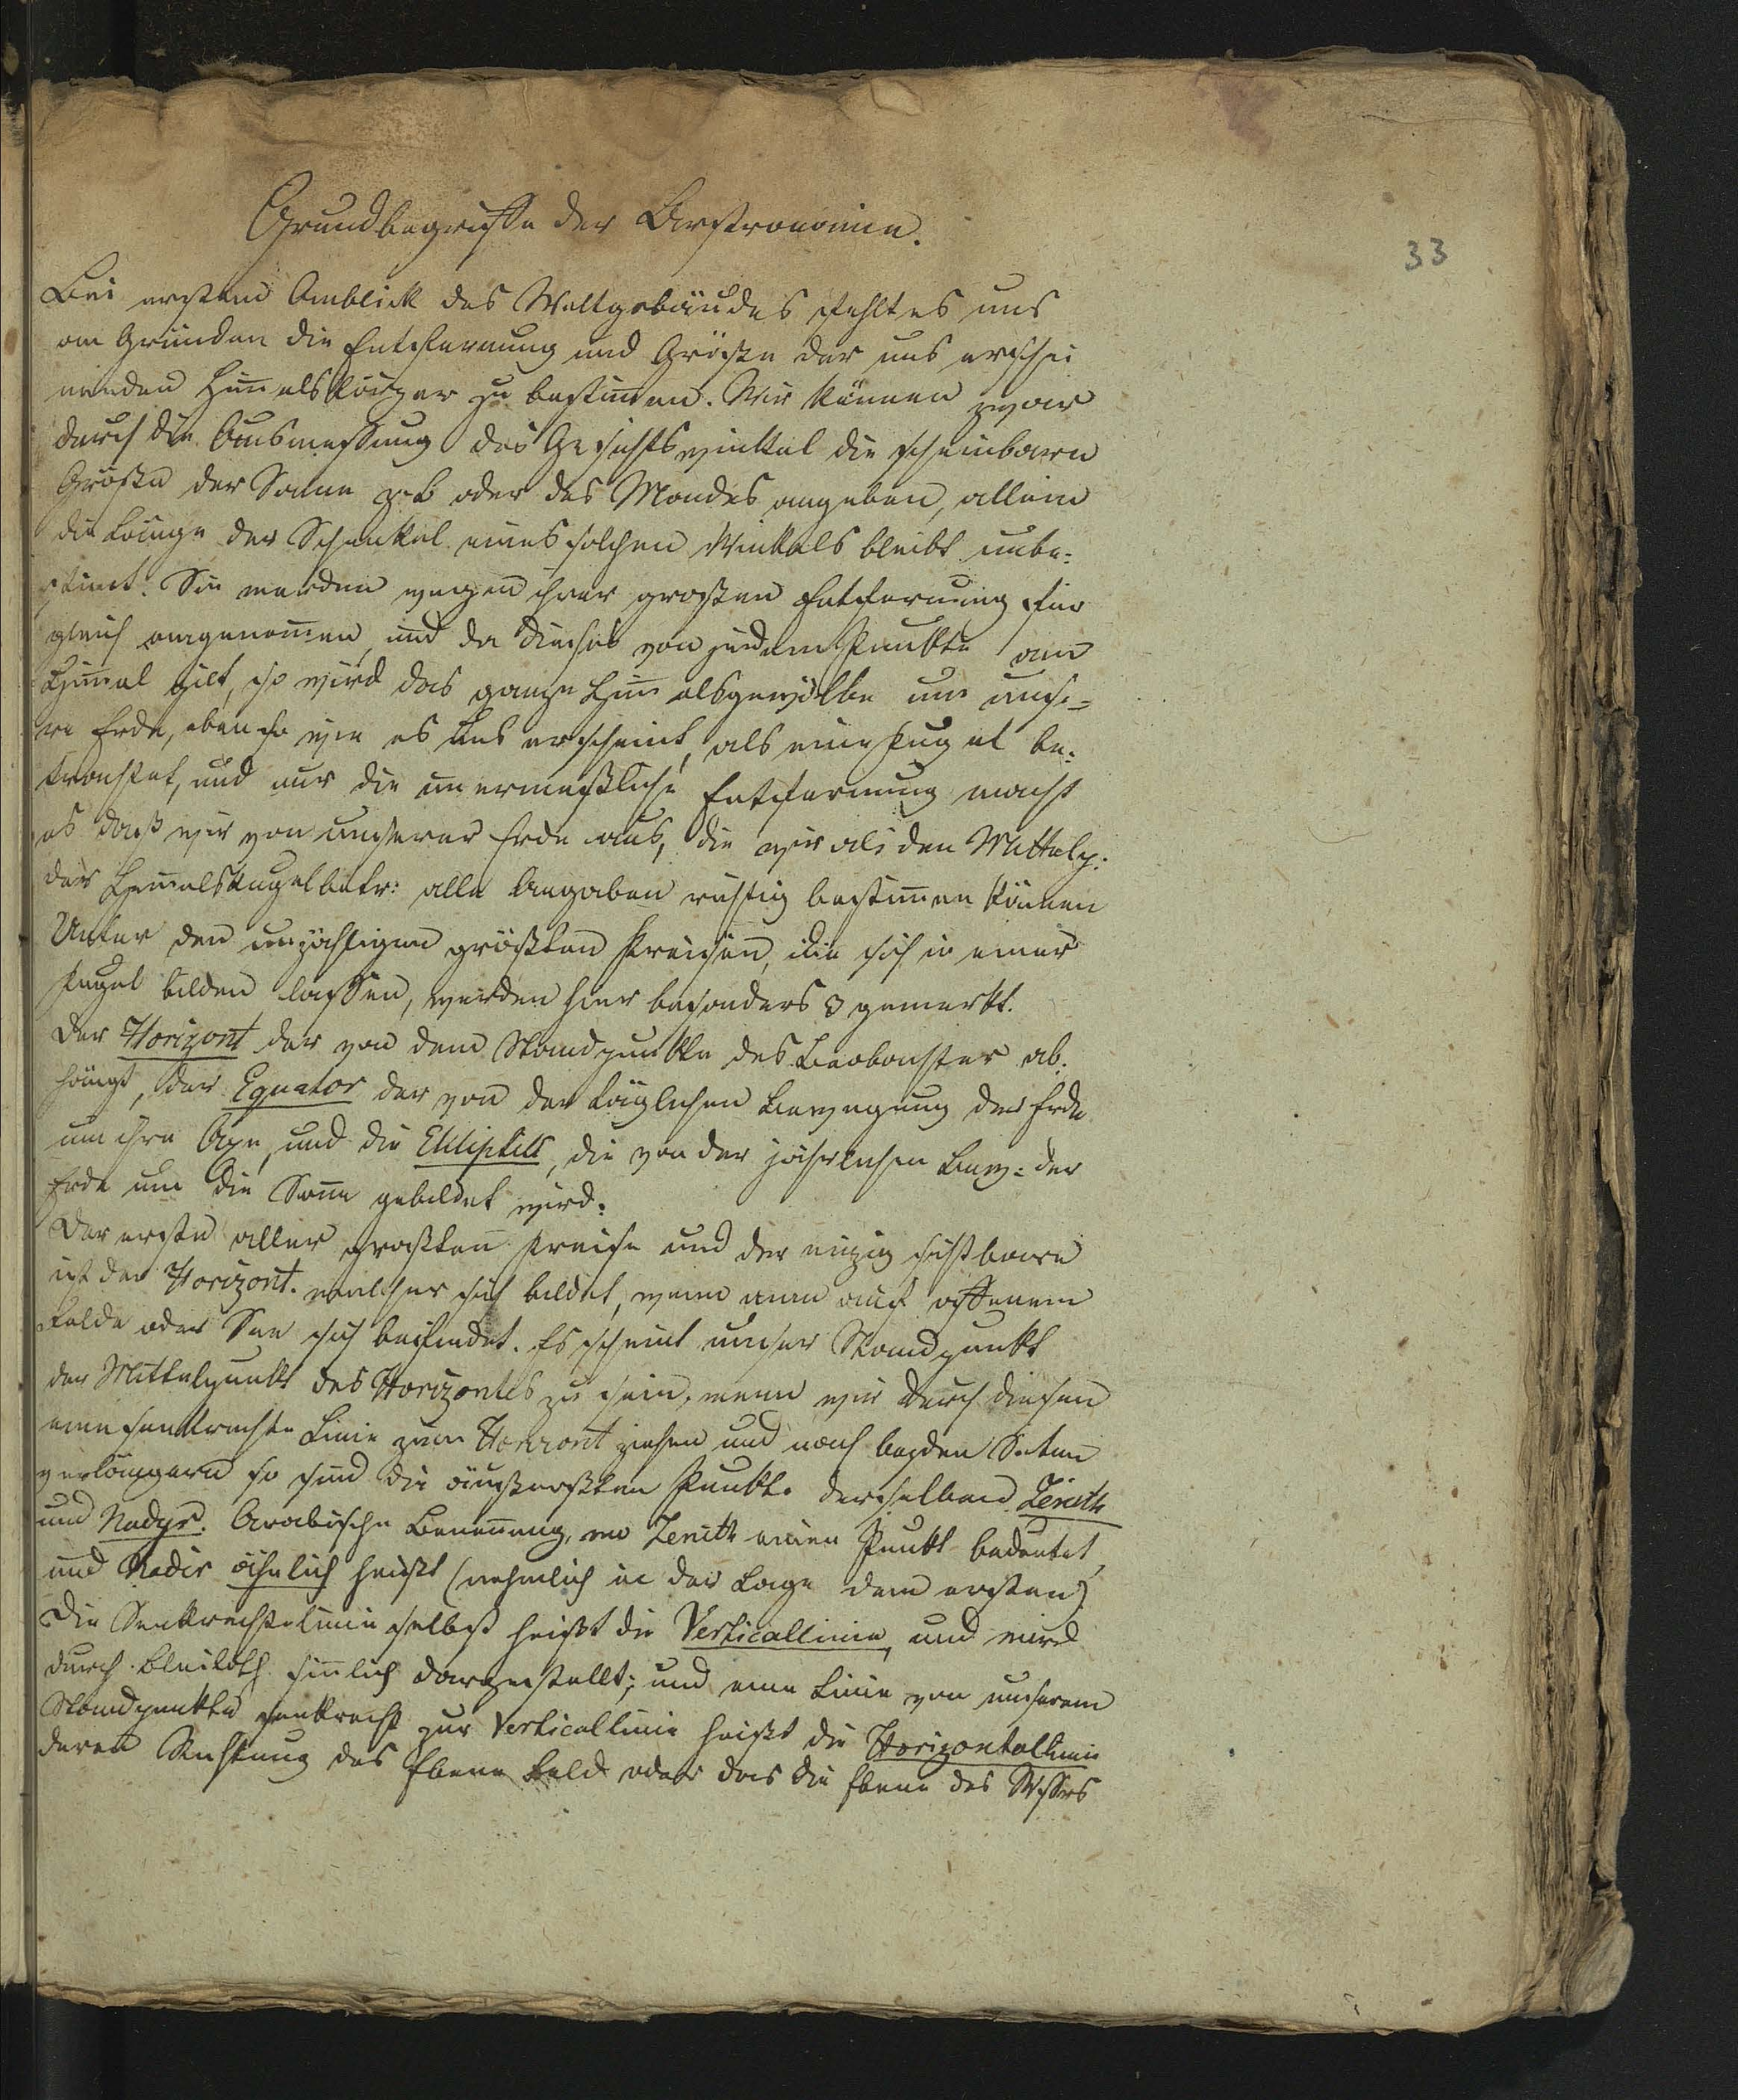 Grundbegriffe der Aerstronomie.
33
Bei ersten Anblick des Weltgebäudes fehlt es uns
an Gründen die Entfernung und Größe der uns erschei
nenden Him̄elskörper zu bestim̄en. Wir können zwar
durch die Ausmessung des Gesichtswinkel die scheinbare
Größe der Sonne z.b oder des Mondes angeben, allein
die Länge der Schenkel eines solchen Winkels bleibt unbe-
stimt. Sie werden wegen ihrer großen Entfernung für
gleich angenom̄en, und da dieses von jedem Punkte am
Him̄el gilt, so wird das ganze Him̄elsgewölbe um unse-
re Erde, eben so wie es uns erscheint, als eine Kugel be-
trachtet, und nur die unermeßliche Entfernung macht
es daß wir von unserer Erde aus, die wir als den Mittelp:
der Him̄elskugel betr: alle Angaben richtig bestim̄en können
Unter den unzähligen größten Kreisen, die sich in einer
Kugel bilden lassen, werden hier besonders 3 gemerkt.
Der Horizont der von dem Standpunkte des Beobachter ab-
hängt, der Equator der von der täglichen Bewegung der Erde
um ihre Axe, und die Ekliptick, die von der jährlichen Bew: der
Erde um die Son̄e gebildet wird.
Der erste aller großten Kreise und der einzig sichtbare
ist der Horizont. welcher sich bildet, wenn man auf offenem
Felde oder See sich befindet. Es scheint unser Standpunkt
der Mittelpunkt des Horizontes zu sein, wenn wir durch diesen
eine senkrechte Linie zum Horizont ziehen und nach beyden Seiten
verlängern so sind die äußersten Punkte derselben Zenith
und Nadyr. Arabische Benen̄ung, wo Zenith einen Punkt bedeutet,
und Nadir ähnlich heißt (nehmlich in der Lage dem ersten)
Die Senkrechtelinie selbst heißt die Verticallinie, und wird
durch Bleiloth sin̄lich dargestellt; und eine Linie von unserem
Standpunkte senkrecht zur Verticallinie heißt die Horizontallinie
deren Richtung das Ebene Feld oder das die Ebene des Wssers